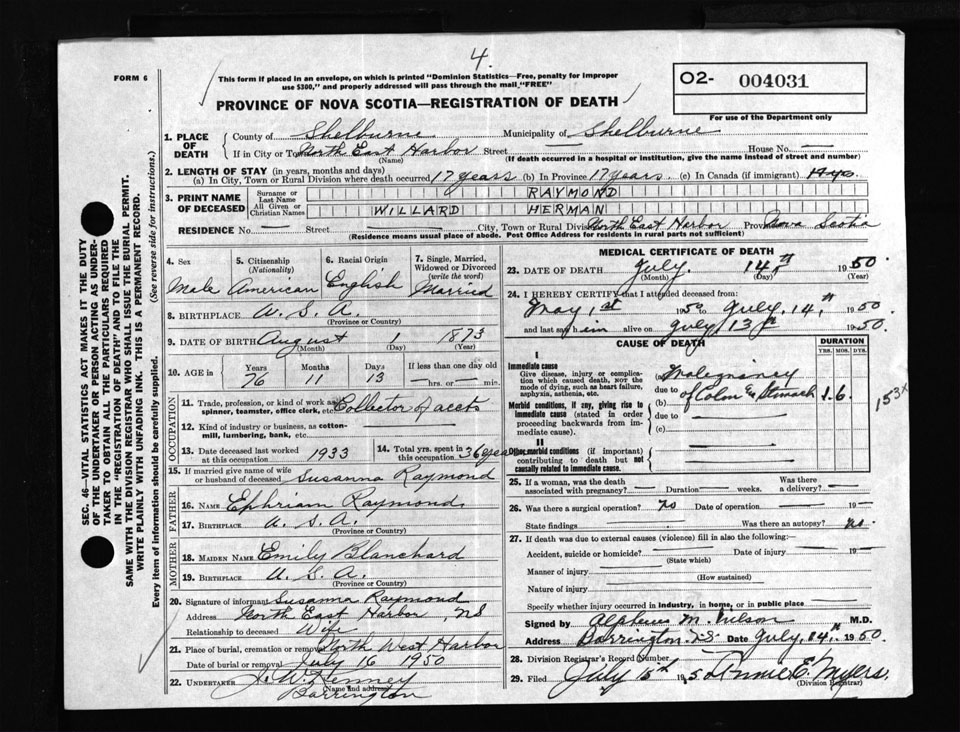 4.
FORM 6
This form if placed in an envelope, on which is printed "Dominion Statistics—Free, penalty for improper
use $300," and properly addressed will pass through the mail "FREE"
O2- 004031
For use of the Department only
PROVINCE OF NOVA SCOTIA—REGISTRATION OF DEATH
1. PLACE OF DEATH
County of Shelburne Municipality of Shelburne
If in City or Town North East Harbor Street — House No. —
(Name) (If death occurred in a hospital or institution, give the name instead of street and number)
2. LENGTH OF STAY (in years, months and days)
(a) In City, Town or Rural Division where death occurred 17 years (b) In Province 17 years. (c) In Canada (if immigrant)
3. PRINT NAME OF DECEASED
Surname or Last Name RAYMOND
All Given or Christian Names WILLARD HERMAN
RESIDENCE No. — Street — City, Town or Rural Division North East Harbor Province Nova Scotia
(Residence means usual place of abode. Post Office Address for residents in rural parts not sufficient)
4. Sex
Male
5. Citizenship
(Nationality)
American
6. Racial Origin
English
7. Single, Married,
Widowed or Divorced
(write the word)
Married
8. BIRTHPLACE U.S.A.
(Province or Country)
9. DATE OF BIRTH August 1873
(Month) (Day) (Year)
10. AGE in
Years Months Days If less than one day old
76 11 13 — hrs. or — min.
OCCUPATION
11. Trade, profession, or kind of work as
spinner, teamster, office clerk, etc. Collector of accts
12. Kind of industry or business, as cotton-
mill, lumbering, bank, etc. —
13. Date deceased last worked
at this occupation 1933
14. Total yrs. spent in
this occupation 36 yrs
15. If married give name of wife
or husband of deceased Susanna Raymond
FATHER
16. Name Ephriam Raymond
17. Birthplace U.S.A.
(Province or Country)
MOTHER
18. Maiden Name Emily Blanchard
19. Birthplace U.S.A.
(Province or Country)
20. Signature of informant Susanna Raymond
Address North East Harbor, NS
Relationship to deceased Wife
21. Place of burial, cremation or removal North West Harbor
Date of burial or removal July 16 1950
22. UNDERTAKER J. W. Kenney
(Name and address)
Barrington
MEDICAL CERTIFICATE OF DEATH
23. DATE OF DEATH July. 14th 1950
(Month) (Day) (Year)
24. I HEREBY CERTIFY that I attended deceased from:
May 1st 1950 to July, 14th, 1950
and last saw him alive on July 13th 1950.
CAUSE OF DEATH
DURATION
YRS. MOS. DYS.
I
Immediate cause
Give disease, injury or complica-
tion which caused death, not the
mode of dying, such as heart failure,
asphyxia, asthenia, etc.
Morbid conditions, if any, giving rise to
immediate cause (stated in order
proceeding backwards from im-
mediate cause).
II
Other morbid conditions (if important)
contributing to death but not
causally related to immediate cause.
(a) Malegnancy
due to
(b) of Colon & Stomach 1. 6.
due to —
(c) —
25. If a woman, was the death
associated with pregnancy? — Duration — weeks.
Was there
a delivery? —
26. Was there a surgical operation? no Date of operation — 19—
State findings — Was there an autopsy? no.
27. If death was due to external causes (violence) fill in also the following:—
Accident, suicide or homicide? — Date of injury — 19—
(State which)
Manner of injury —
(How sustained)
Nature of injury —
Specify whether injury occurred in industry, in home, or in public place —
Signed by Alpheus M. Wilson M.D.
Address Barrington. N.S. Date July, 14th. 1950.
28. Division Registrar's Record Number
29. Filed July 15th 1950 Annie E. Myers.
(Division Registrar)
SEC. 46—VITAL STATISTICS ACT MAKES IT THE DUTY
OF THE UNDERTAKER OR PERSON ACTING AS UNDER-
TAKER TO OBTAIN ALL THE PARTICULARS REQUIRED
IN THE "REGISTRATION OF DEATH" AND TO FILE THE
SAME WITH THE DIVISION REGISTRAR WHO SHALL ISSUE THE BURIAL PERMIT.
WRITE PLAINLY WITH UNFADING INK. THIS IS A PERMANENT RECORD.
Every item of information should be carefully supplied. (See reverse side for instructions.)